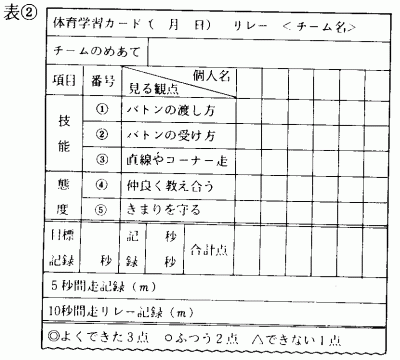 表②
体育学習カード（　月　日）　リレー　＜チーム名＞
チームのめあて
項目　番号　個人名
見る観点
技能　①　バトンの渡し方
②　バトンの受け方
③　直線やコーナー走
態度　④　仲良く教え合う
⑤　きまりを守る
目標記録　秒　記録　秒　秒　合計点
5秒間走記録（m）
10秒間走リレー記録（m）
◎よくできた3点　○ふつう2点　△できない1点